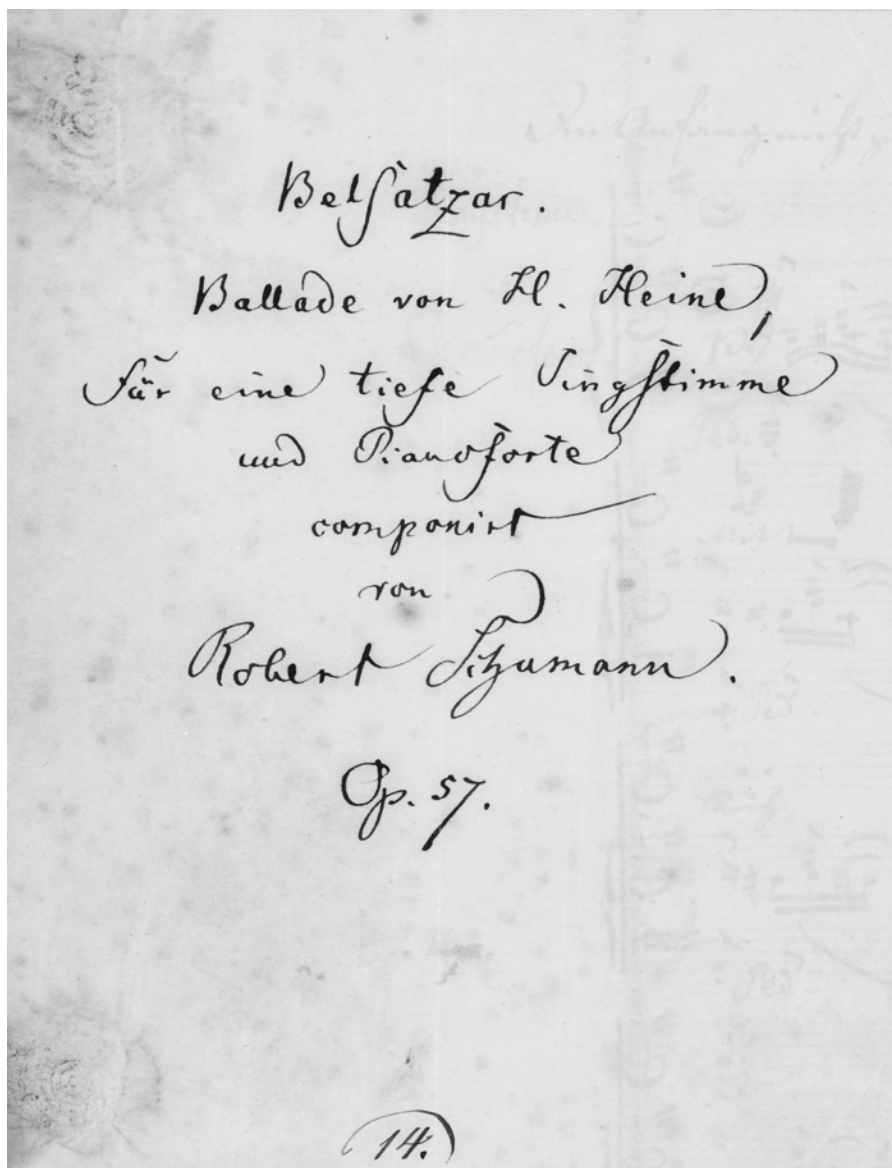 Belsatzar.
Ballade von H. Heine,
für eine tiefe Singstimme
und Pianoforte
componirt
von
Robert Schumann.
Op. 57.
14.